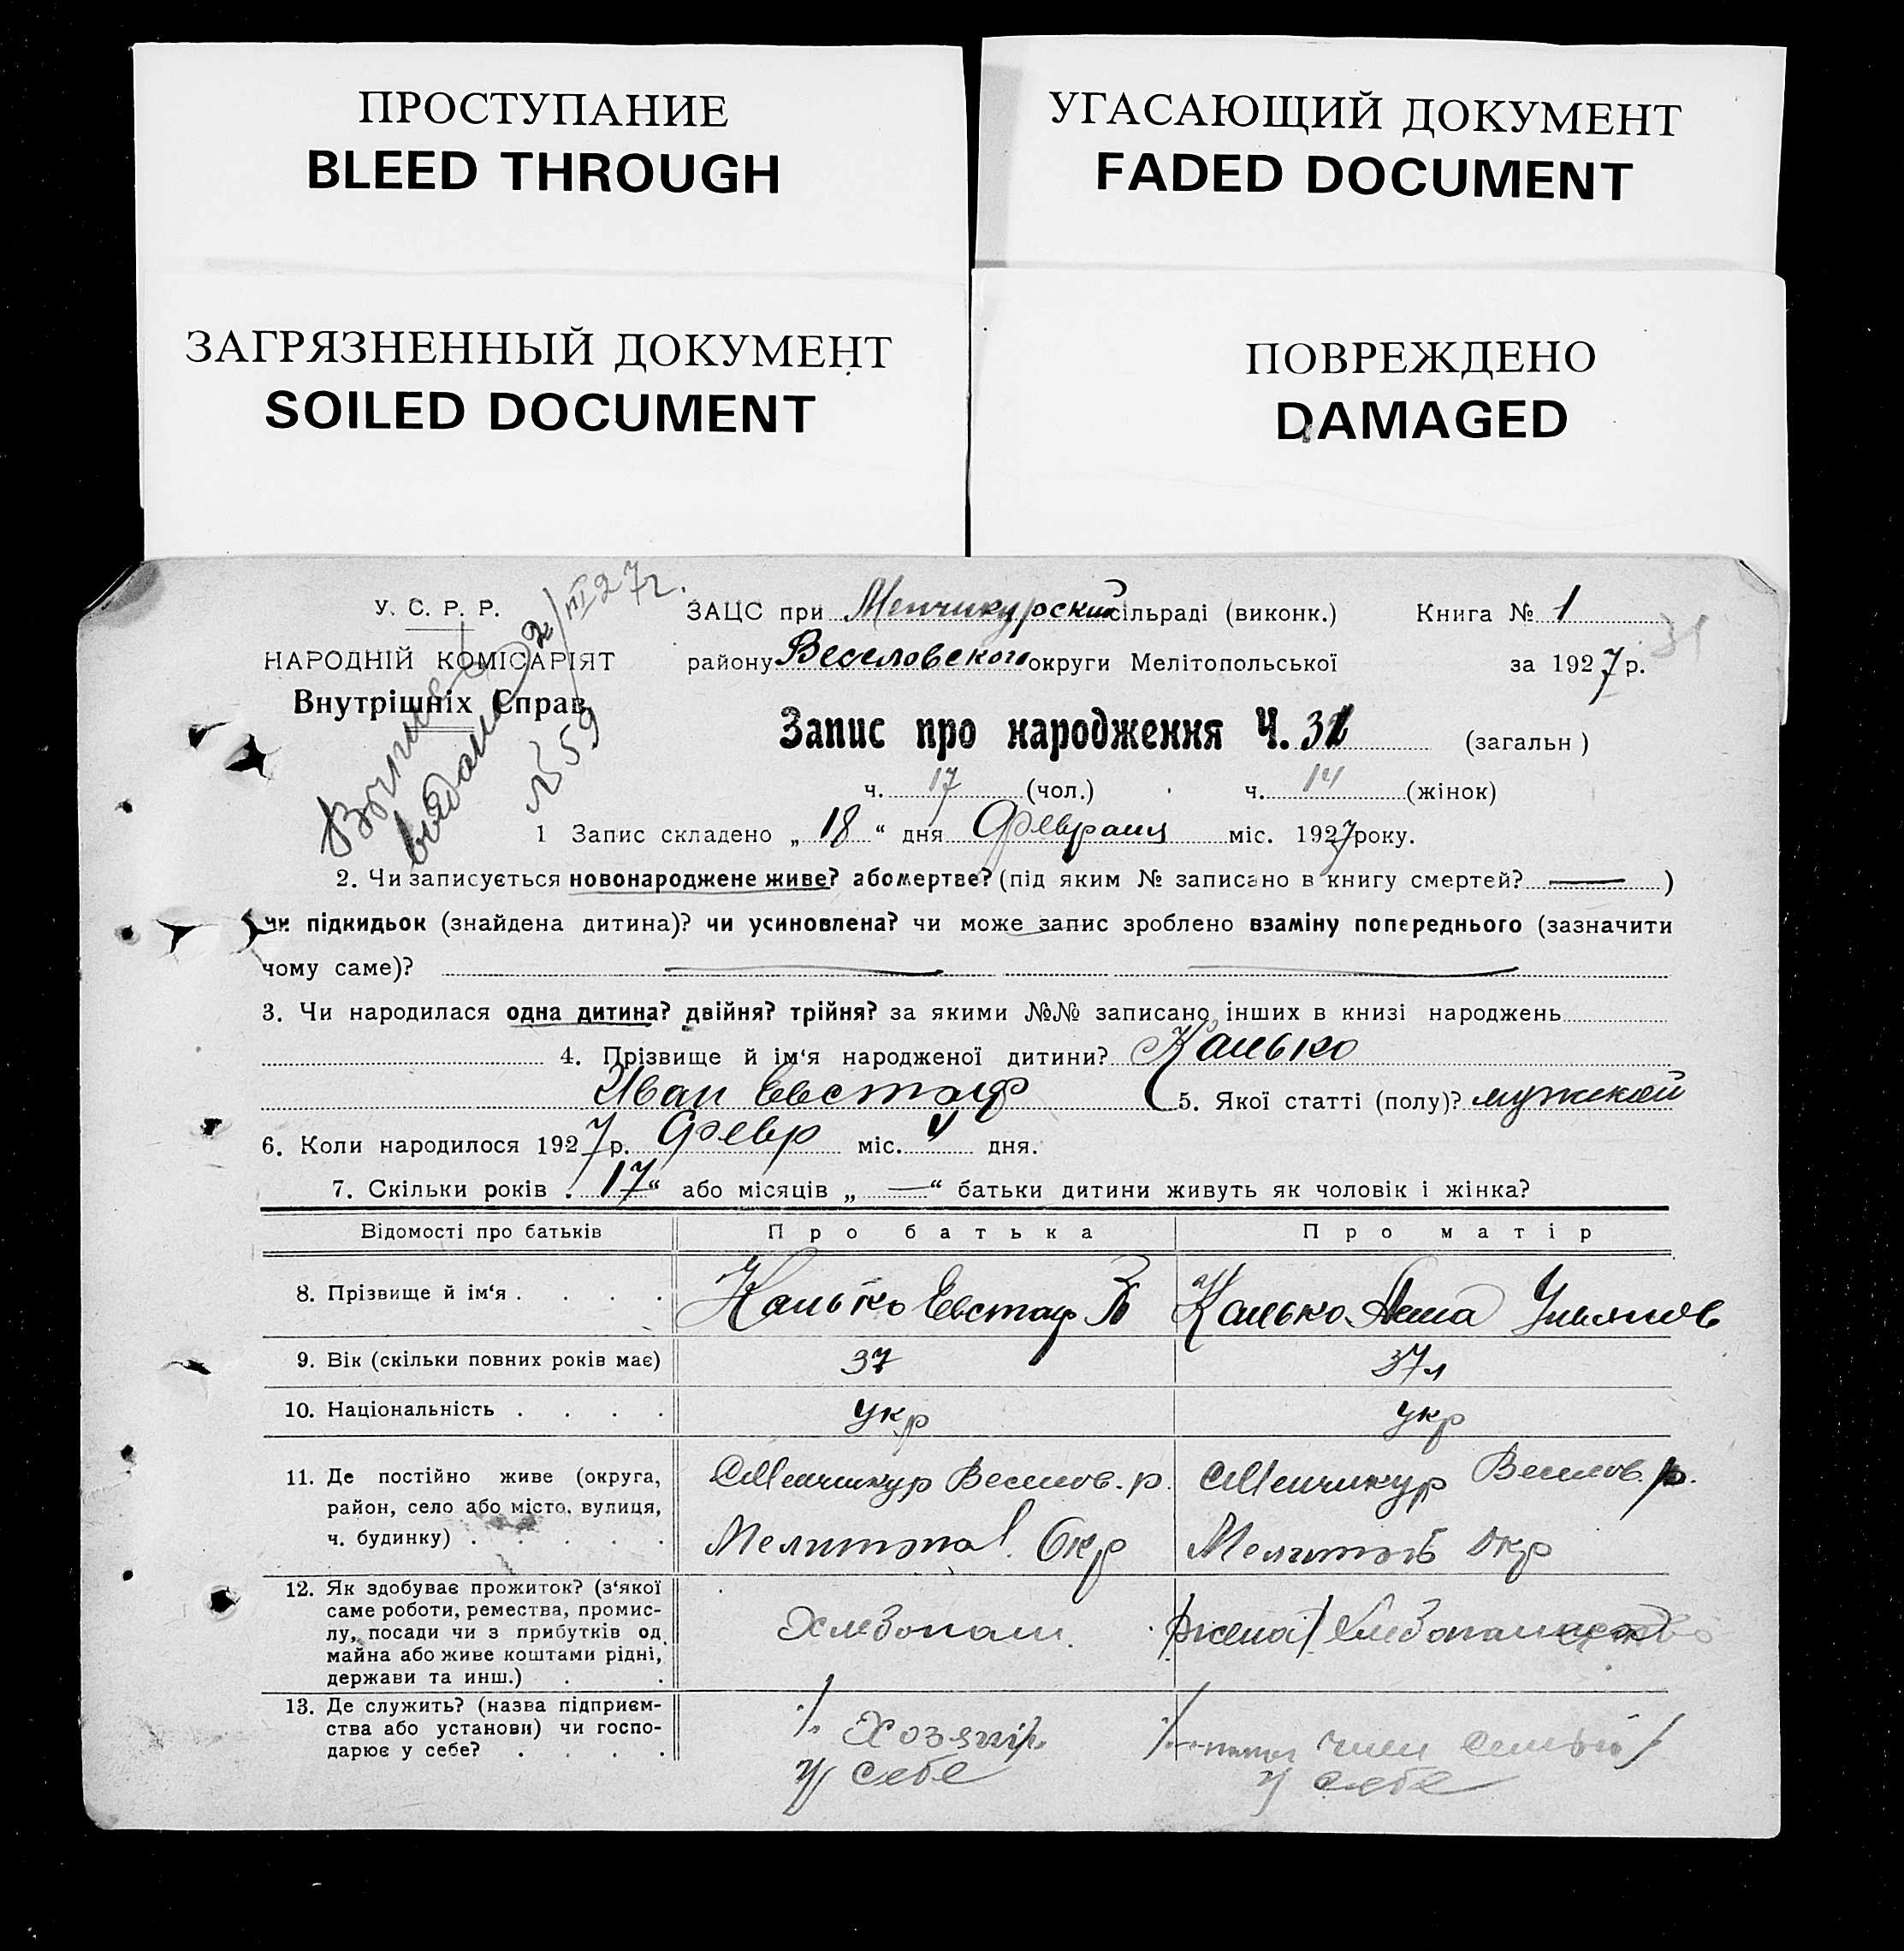 ПРОСТУПАНИЕ
BLEED THROUGH
УГАСАЮЩИЙ ДОКУМЕНТ
FADED DOCUMENT
ЗАГРЯЗНЕННЫЙ ДОКУМЕНТ
SOILED DOCUMENT
ПОВРЕЖДЕНО
DAMAGED
У. С. Р. Р.
НАРОДНІЙ КОМІСАРІЯТ
Внутрішніх Справ.
№ 59
ЗАЦС при Менчикурский сільраді (виконк.) Книга № 1
31
району Веселовского округи Мелітопольської за 1927 р.
Запис про народження Ч. (загальн)
ч. 17 (чол.) ч. 14 (жінок)
1 Запис складено „ 18 “ дня Февраля міс. 1927 року.
2. Чи записується новонароджене живе? або мертве? (під яким № записано в книгу смертей? — )
чи підкидьок (знайдена дитина)? чи усиновлена? чи може запис зроблено взаміну попереднього (зазначити
чому саме)?
3. Чи народилася одна дитина? двійня? трійня? за якими №№ записано інших в книзі народжень
4. Прізвище й ім‘я народженої дитини? Калько
Иван Евстаф 5. Якої статті (полу)? мужской
6. Коли народилося 1927 р. Февр міс. дня.
7. Скільки років „ 17 “ або місяців „ — “ батьки дитини живуть як чоловік і жінка?
Відомості про батьків Про батька Про матір
8. Прізвище й ім‘я . . . . Калько Евстаф Калько Ульянов
9. Вік (скільки повних років має) 37 37 л
10. Національність . . . . укр укр
11. Де постійно живе (округа, с Менчикур Веселов. р. с Менчикур Веселов. р.
район, село або місто, вулиця,
ч. будинку) . . . . . Мелитопол. Окр Мелитоп Окр
12. Як здобуває прожиток? (з‘якої
саме роботи, ремества, промис-
лу, посади чи з прибутків од Хлебопаш. /жена/
майна або живе коштами рідні,
держави та инш.) . .
13. Де служить? (назва підприєм-
ства або установи) чи госпо- Хозяин член семьи
дарює у себе? . . . . у себе у себе